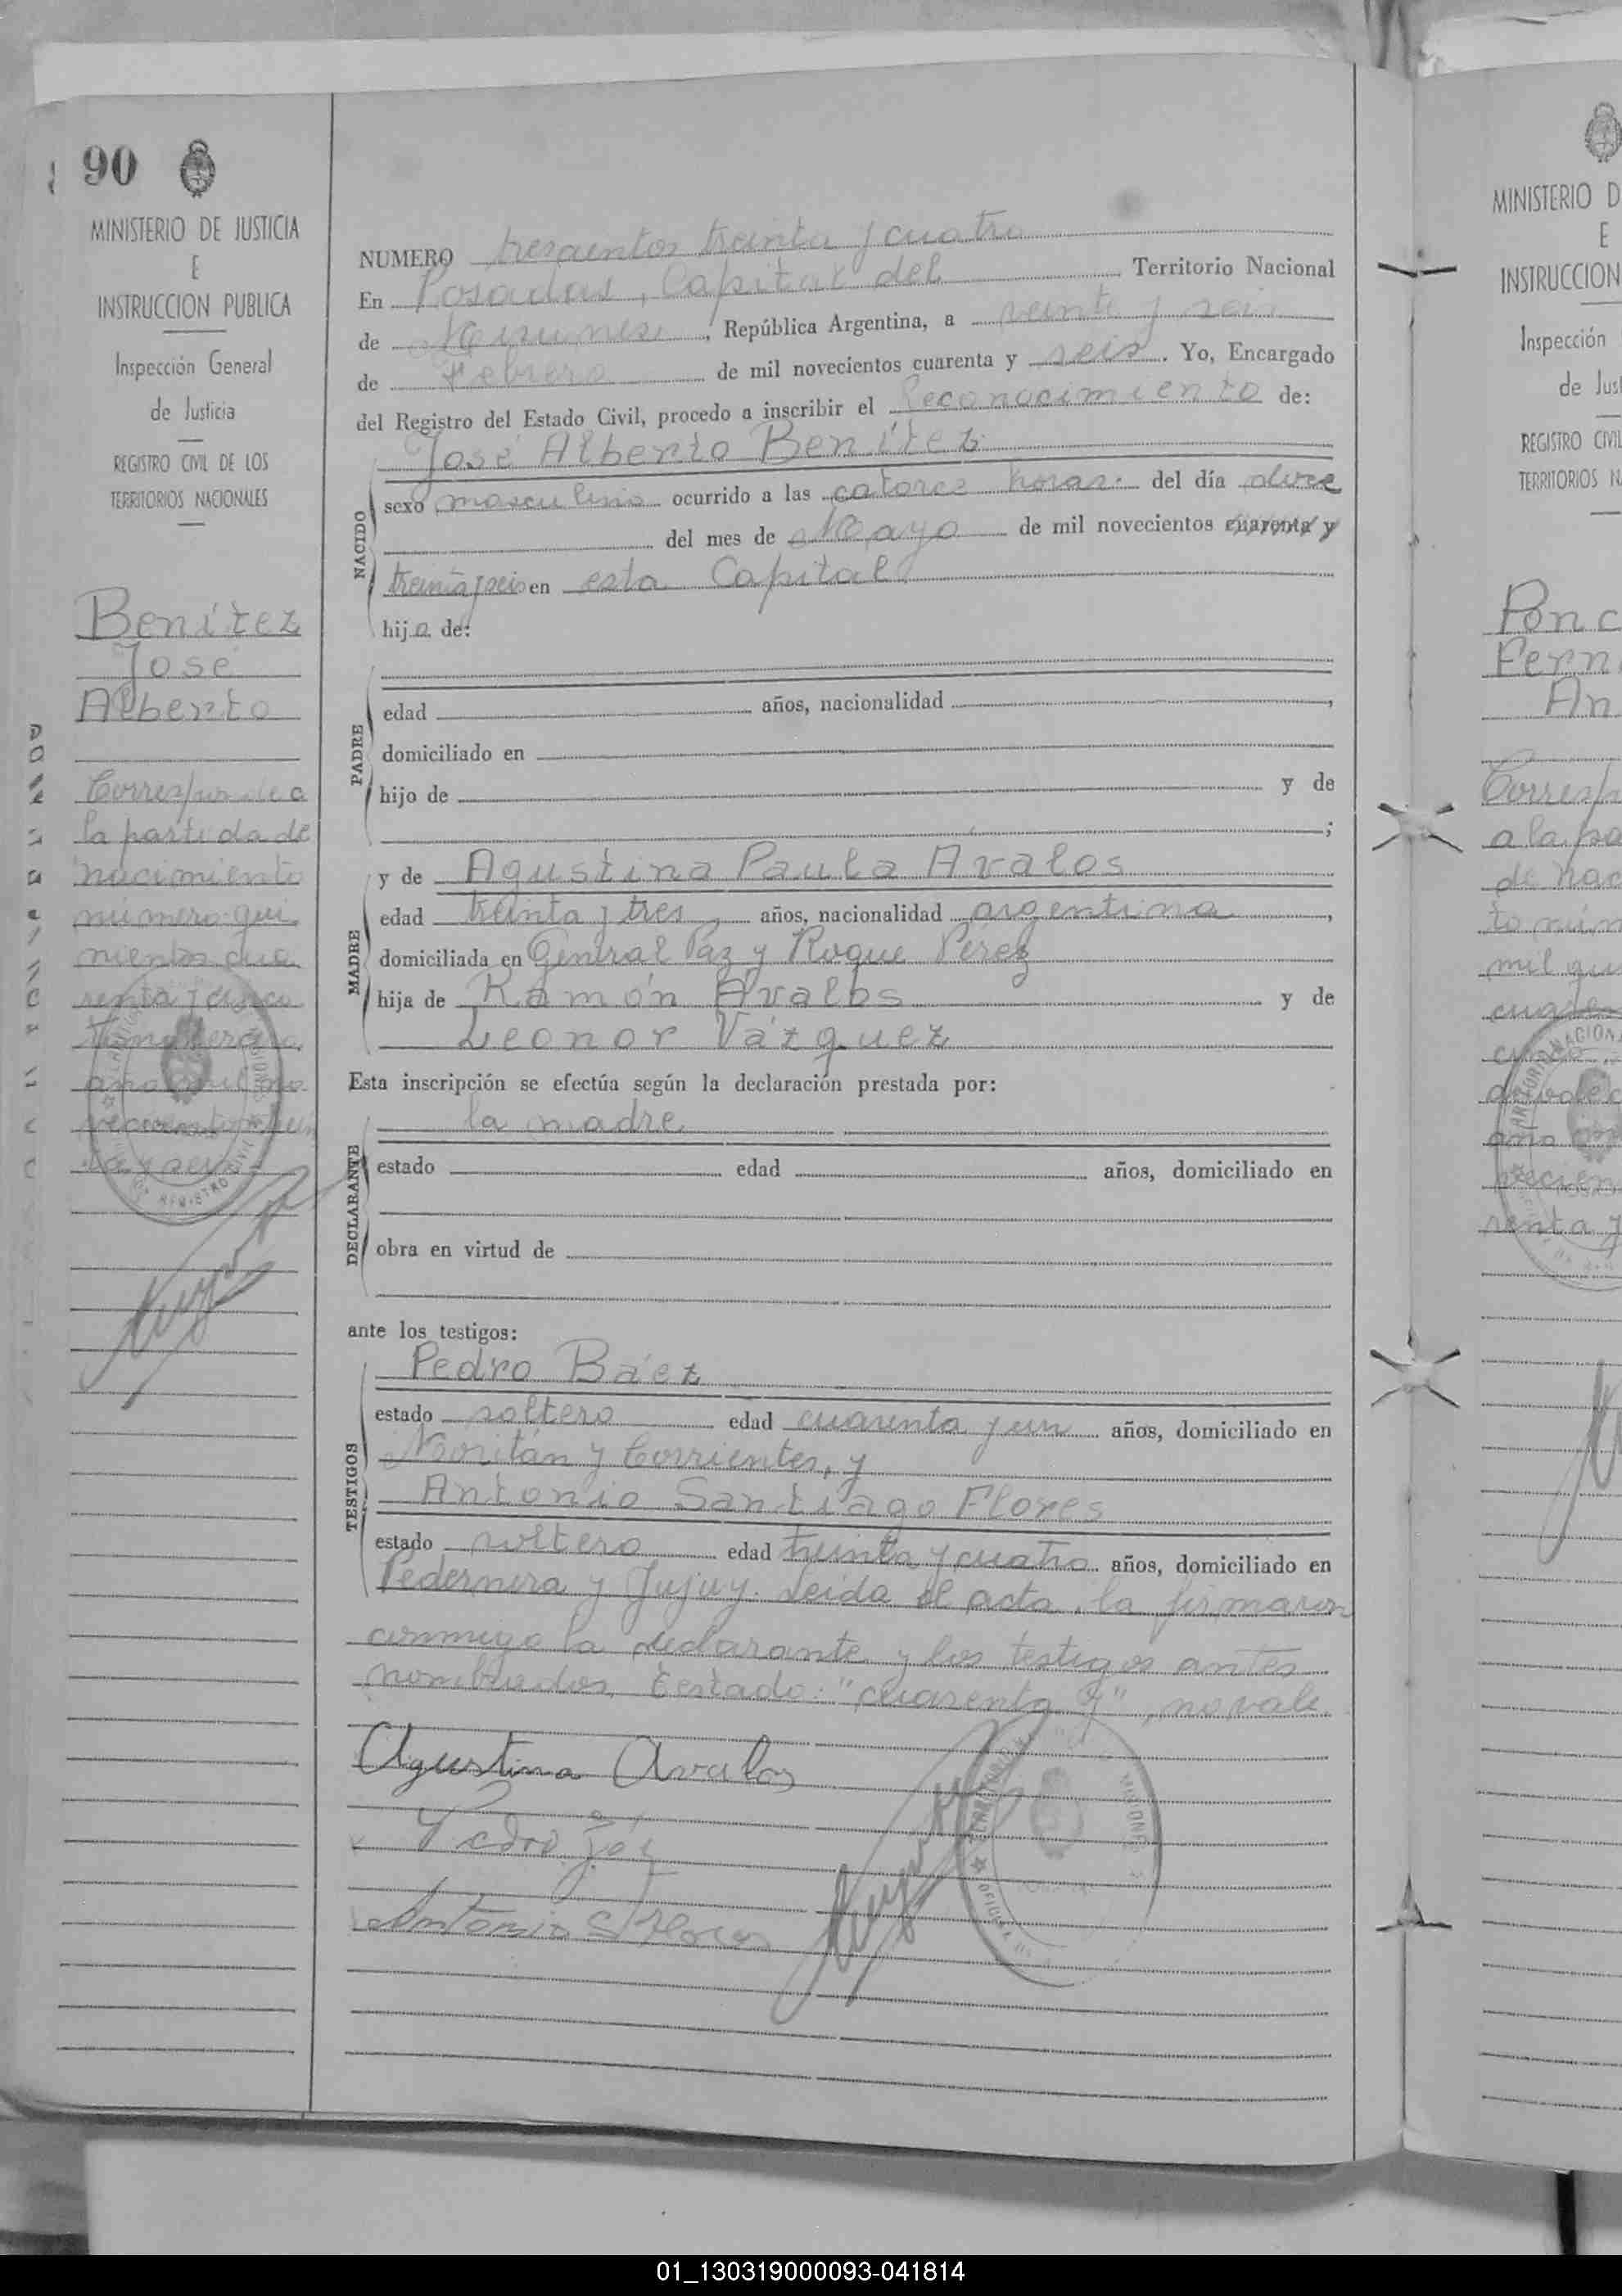 90
MINISTERIO DE JUSTICIA
E
INSTRUCCION PUBLICA
Inspección General
de Justicia
REGISTRO CIVIL DE LOS
TERRITORIOS NACIONALES
Benítez
José
Alberto
Corresponde a
la partida de
nacimiento
número qui
nientos cua
renta y cinco
Tomo tercero
año mil no
vecientos trein
ta y seis
NUMERO trescientos treinta y cuatro
En Posadas, Capital del Territorio Nacional
de Misiones, República Argentina, a veinte y seis
de Febrero de mil novecientos cuarenta y seis. Yo, Encargado
del Registro del Estado Civil, procedo a inscribir el Reconocimiento de:
José Alberto Benítez
NACIDO
sexo masculino ocurrido a las catorce horas del día doce
del mes de Mayo de mil novecientos cuarenta y
treinta y seis en esta Capital
hijo de:
PADRE
edad años, nacionalidad ,
domiciliado en
hijo de y de
;
MADRE
y de Agustina Paula Avalos
edad treinta y tres, años, nacionalidad argentina,
domiciliada en General Paz y Roque Pérez
hija de Ramón Avalos y de
Leonor Vázquez
Esta inscripción se efectúa según la declaración prestada por:
DECLARANTE
la madre
estado edad años, domiciliado en
obra en virtud de
ante los testigos:
TESTIGOS
Pedro Báez
estado soltero edad cuarenta y un años, domiciliado en
Moritán y Corrientes, y
Antonio Santiago Flores
estado soltero edad treinta y cuatro años, domiciliado en
Pedernera y Jujuy. Leída el acta, la firmaron
conmigo la declarante y los testigos antes
nombrados. Testado: "cuarenta y", no vale.
Agustina Avalos
Pedro
Antonio S Flores
MINISTERIO D
E
INSTRUCCION
Inspección
de Jus
REGISTRO CIVIL
TERRITORIOS N
Ponc
Fern
An
Corresp
a la pa
de nac
to núm
mil qui
01_130319000093-041814